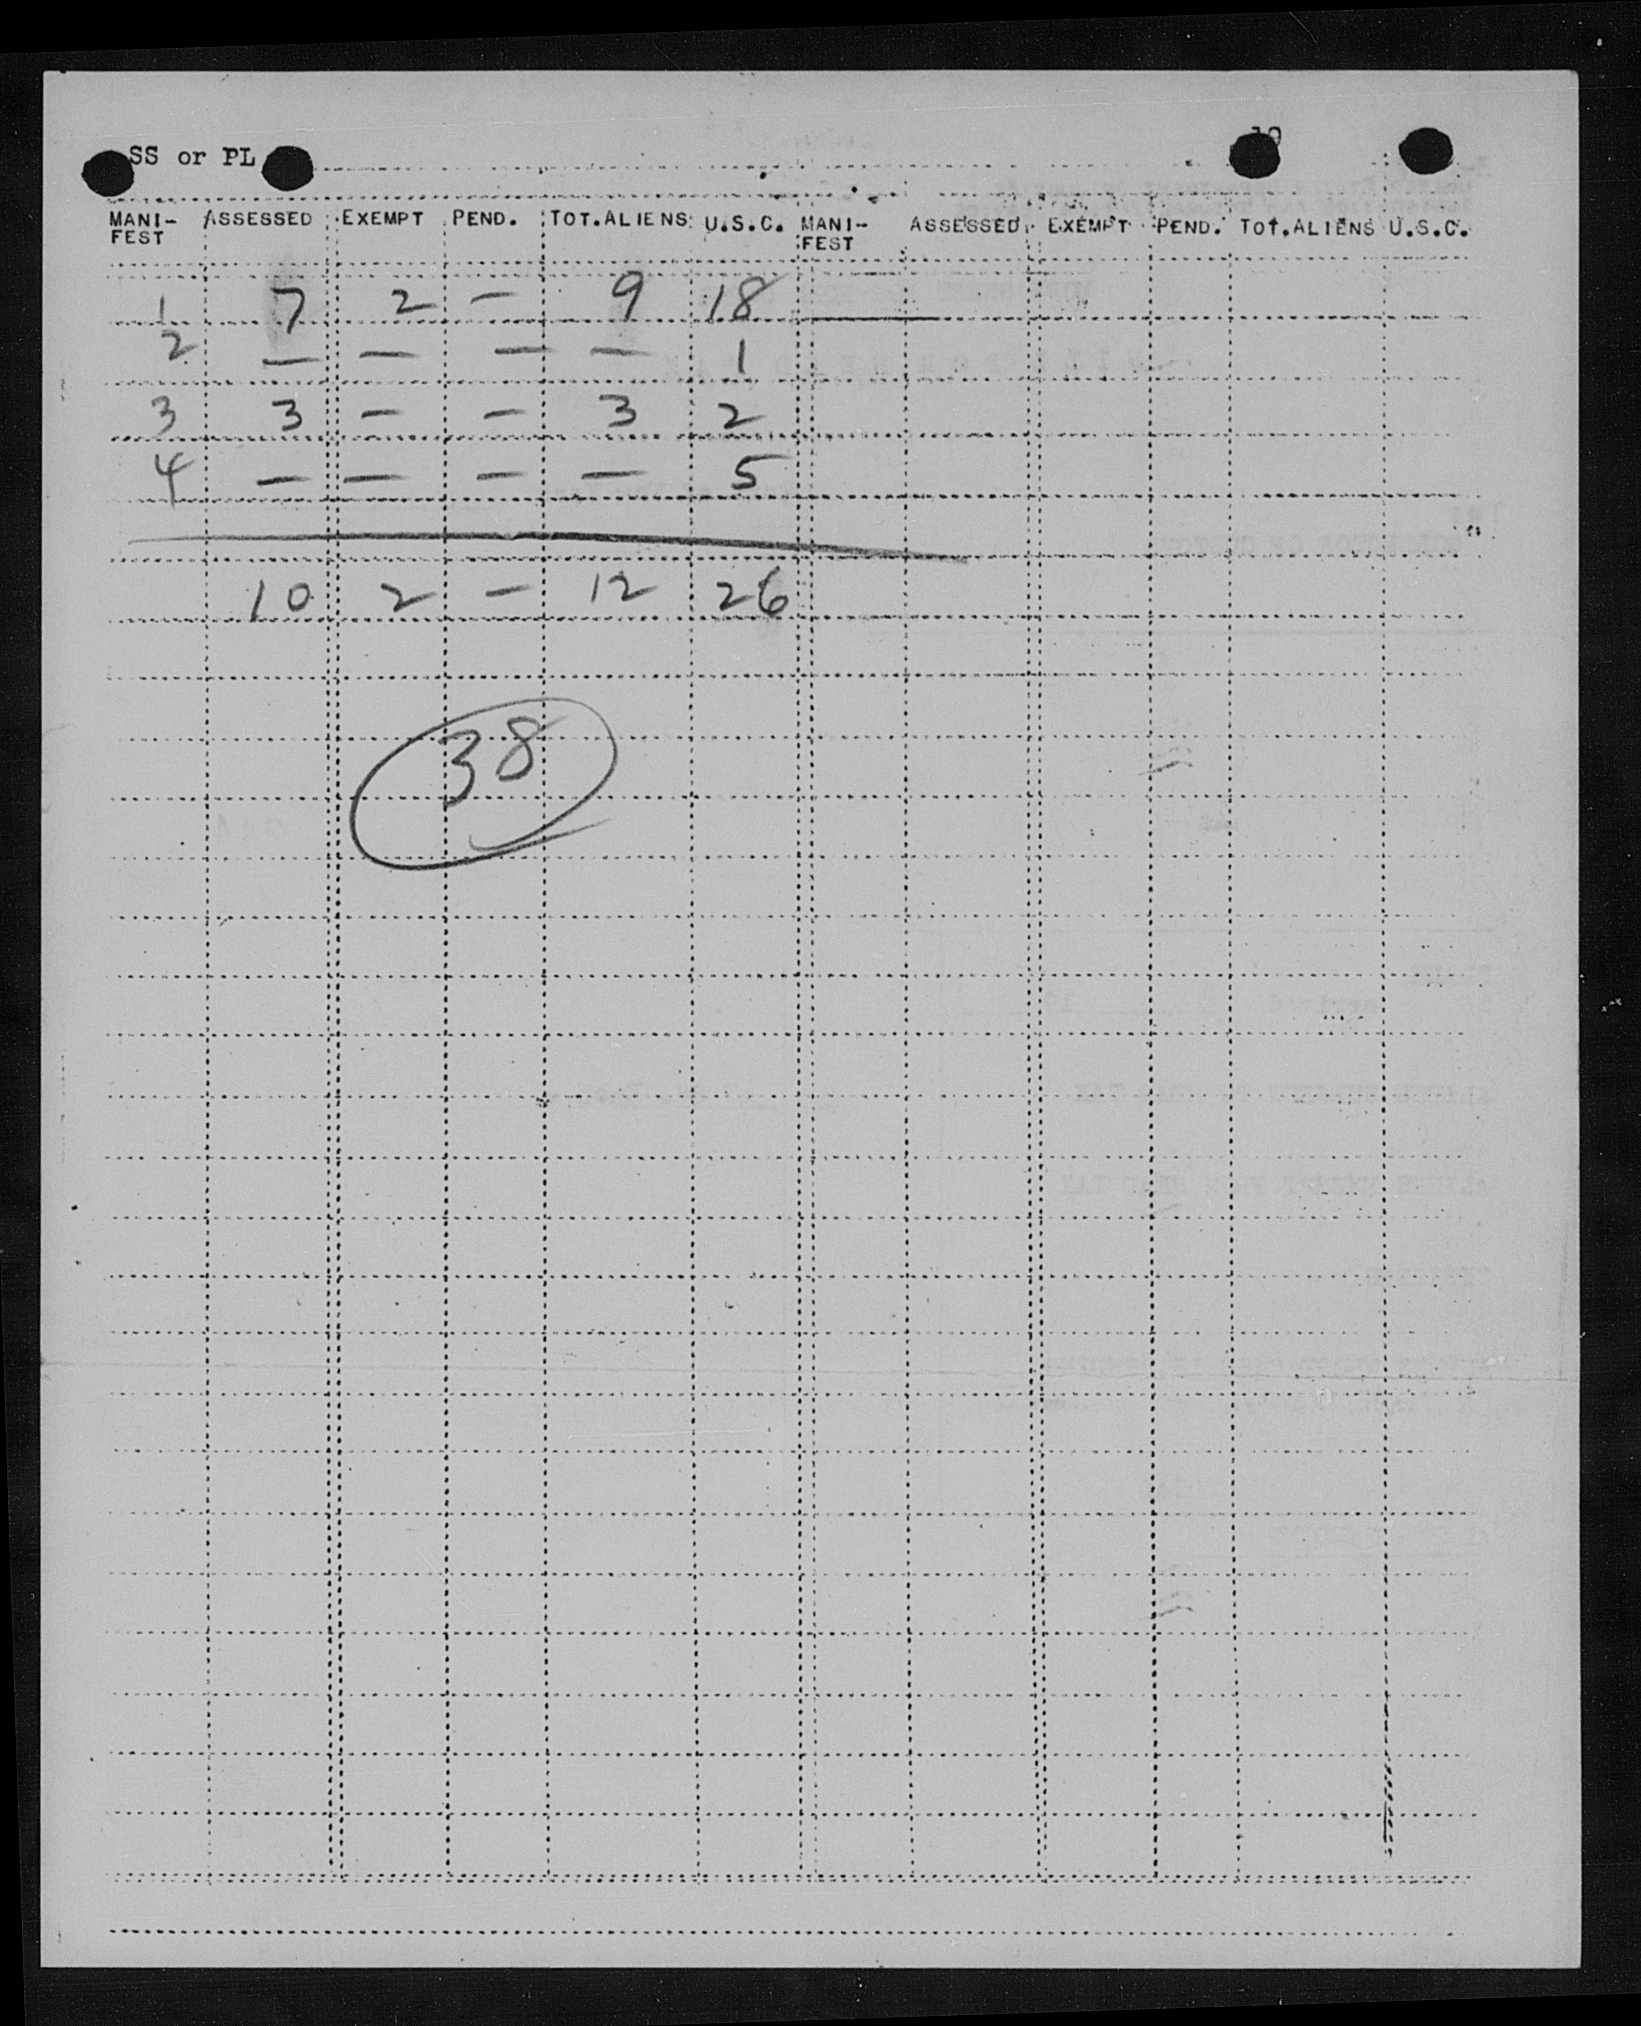 SS or PL 19
MANI-FEST ASSESSED EXEMPT PEND. TOT.ALIENS U.S.C. MANI-FEST ASSESSED EXEMPT PEND. TOT.ALIENS U.S.C.
1 7 2 — 9 18
2 — — — — 1
3 3 — — 3 2
4 — — — — 5
10 2 — 12 26
38